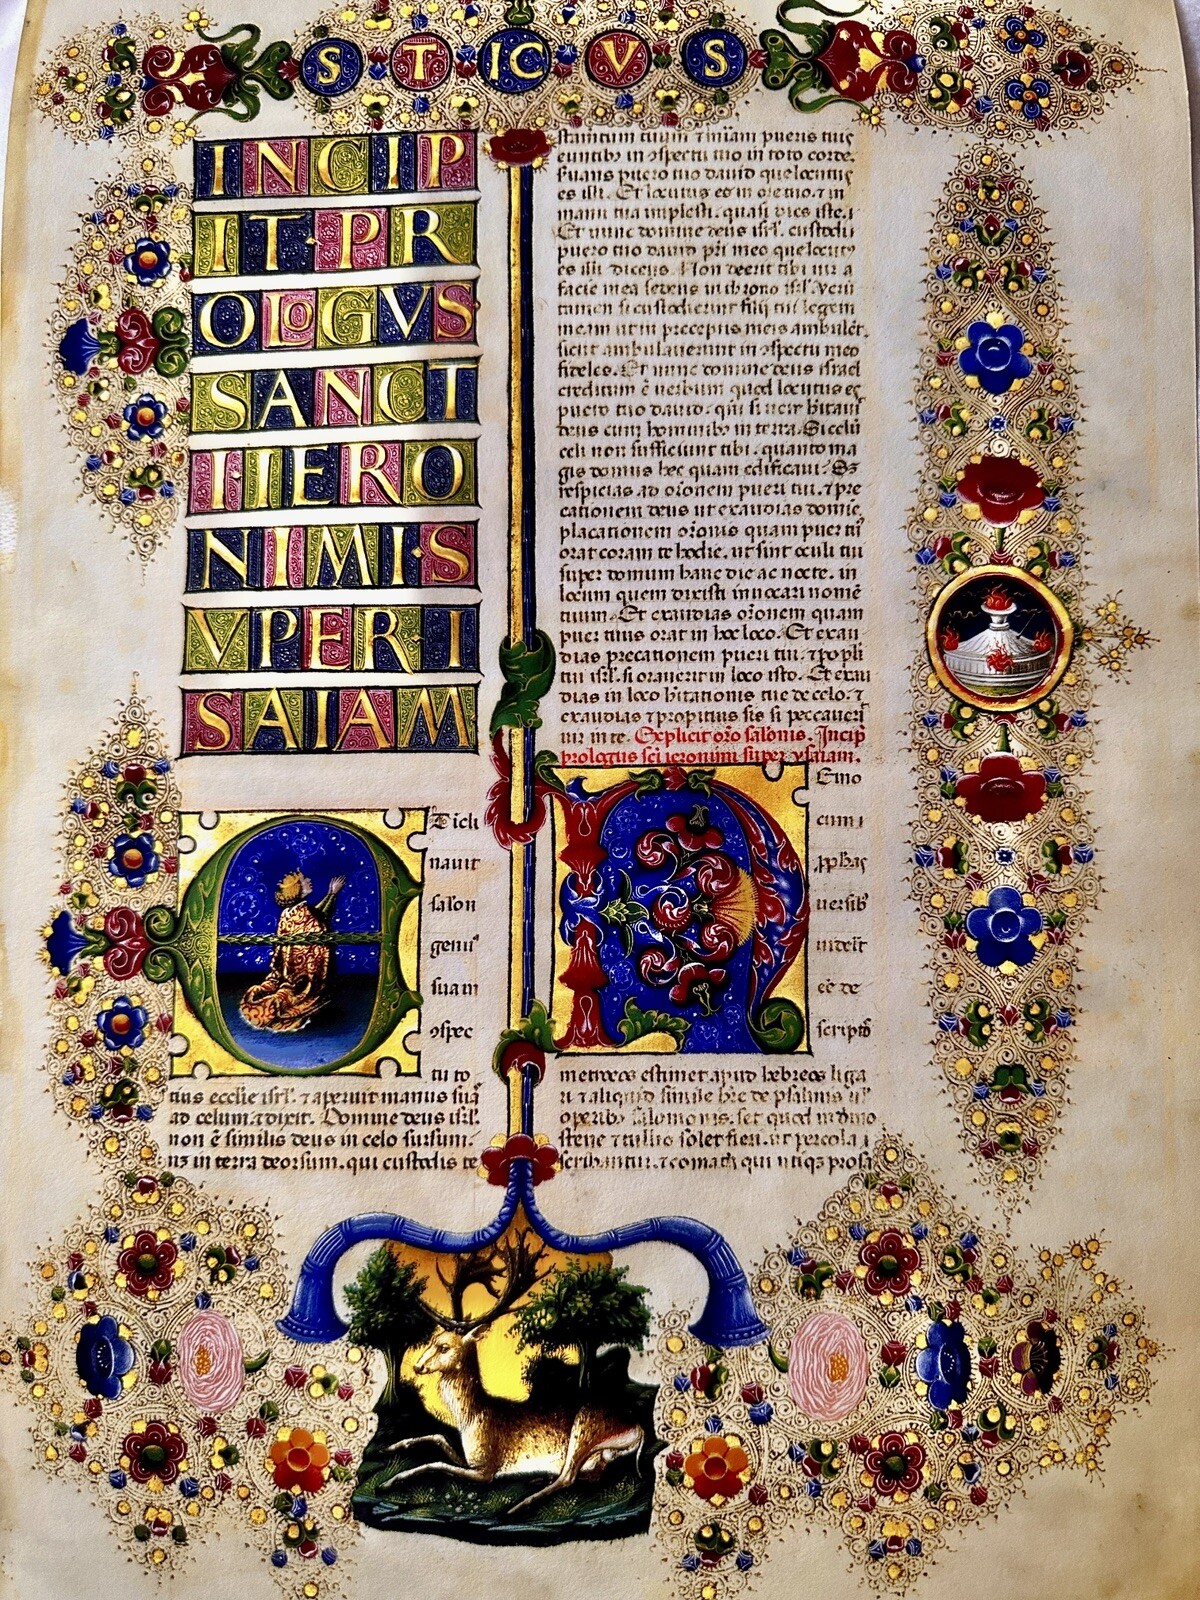 S T IC V S
INCIP
IT·PR
OLOGVS
SANCT
I·HERO
NIMI·S
VPER·I
SAIAM
T icli
nauit
salon
genu
suam
ↄspec
tu to
tius ecclie isrl. ⁊ aperuit manus suā
ad celum. ⁊ dixit. Domine deus isrl.
non ē similis deus in celo sursum.
nꝫ in terra deorsum. qui custodis te
stamtum tuum ⁊ miam pueris tuis
euntibꝫ in ↄspectu tuo in toto corde.
puero tuo dauid que locutꝫ
es illi. Et locutus es in ore tuo. ⁊ in
manu tua implesti. quasi dies iste.
Et nunc domine deus isrl. custodi
puero tuo dauid pri meo que locutꝫ
es illi dicens. Non deerit tibi uir a
facie mea sedens in throno isrl. Verū
tamen si custodierint filij tui legem
meam ut in preceptis meis ambulēt.
sicut ambulauerunt in ↄspectu meo
fideles. Et nunc domine deus israel
creditum ē uerbum quod locutus es
puero tuo dauid. qui si ueir hitaui
deus cum hominibꝫ in terra. Si celū
celi non sufficiunt tibi. quanto ma
gis domus hec quam edificaui? Sꝫ
respicias ad orōnem pueri tui. ⁊ pre
cationem deus ut exaudias domie.
placationem orōnis quam puer tuꝰ
orat coram te hodie. ut sint oculi tui
super domum hanc die ac nocte. in
locum quem dixisti inuocari nomē
tuum. Et exaudias orōnem quam
puer tuus orat in hoc loco. Et exau
dias precationem pueri tui. ⁊ popli
tui isrl. si orauerit in loco isto. Et exau
dias in loco hitationis tue de celo. ⁊
exaudias ⁊ propitius sis si peccaueri
uir in te. Explicit orō salōnis. Incip
prologus sci ieronimi super ysaiam.
Emo
cum
ꝓphas
uersibꝰ
uiderit
eē de
scriptos
metricos estimet apud hebreos liga
ri ⁊ aliquid simile hꝫc de psalmis
operibꝫ salomonis: set quod in dimo
stene ⁊ tullio solet fieri. ut per cola ⁊
scribantur. ⁊ comata qui utiqꝫ prosa